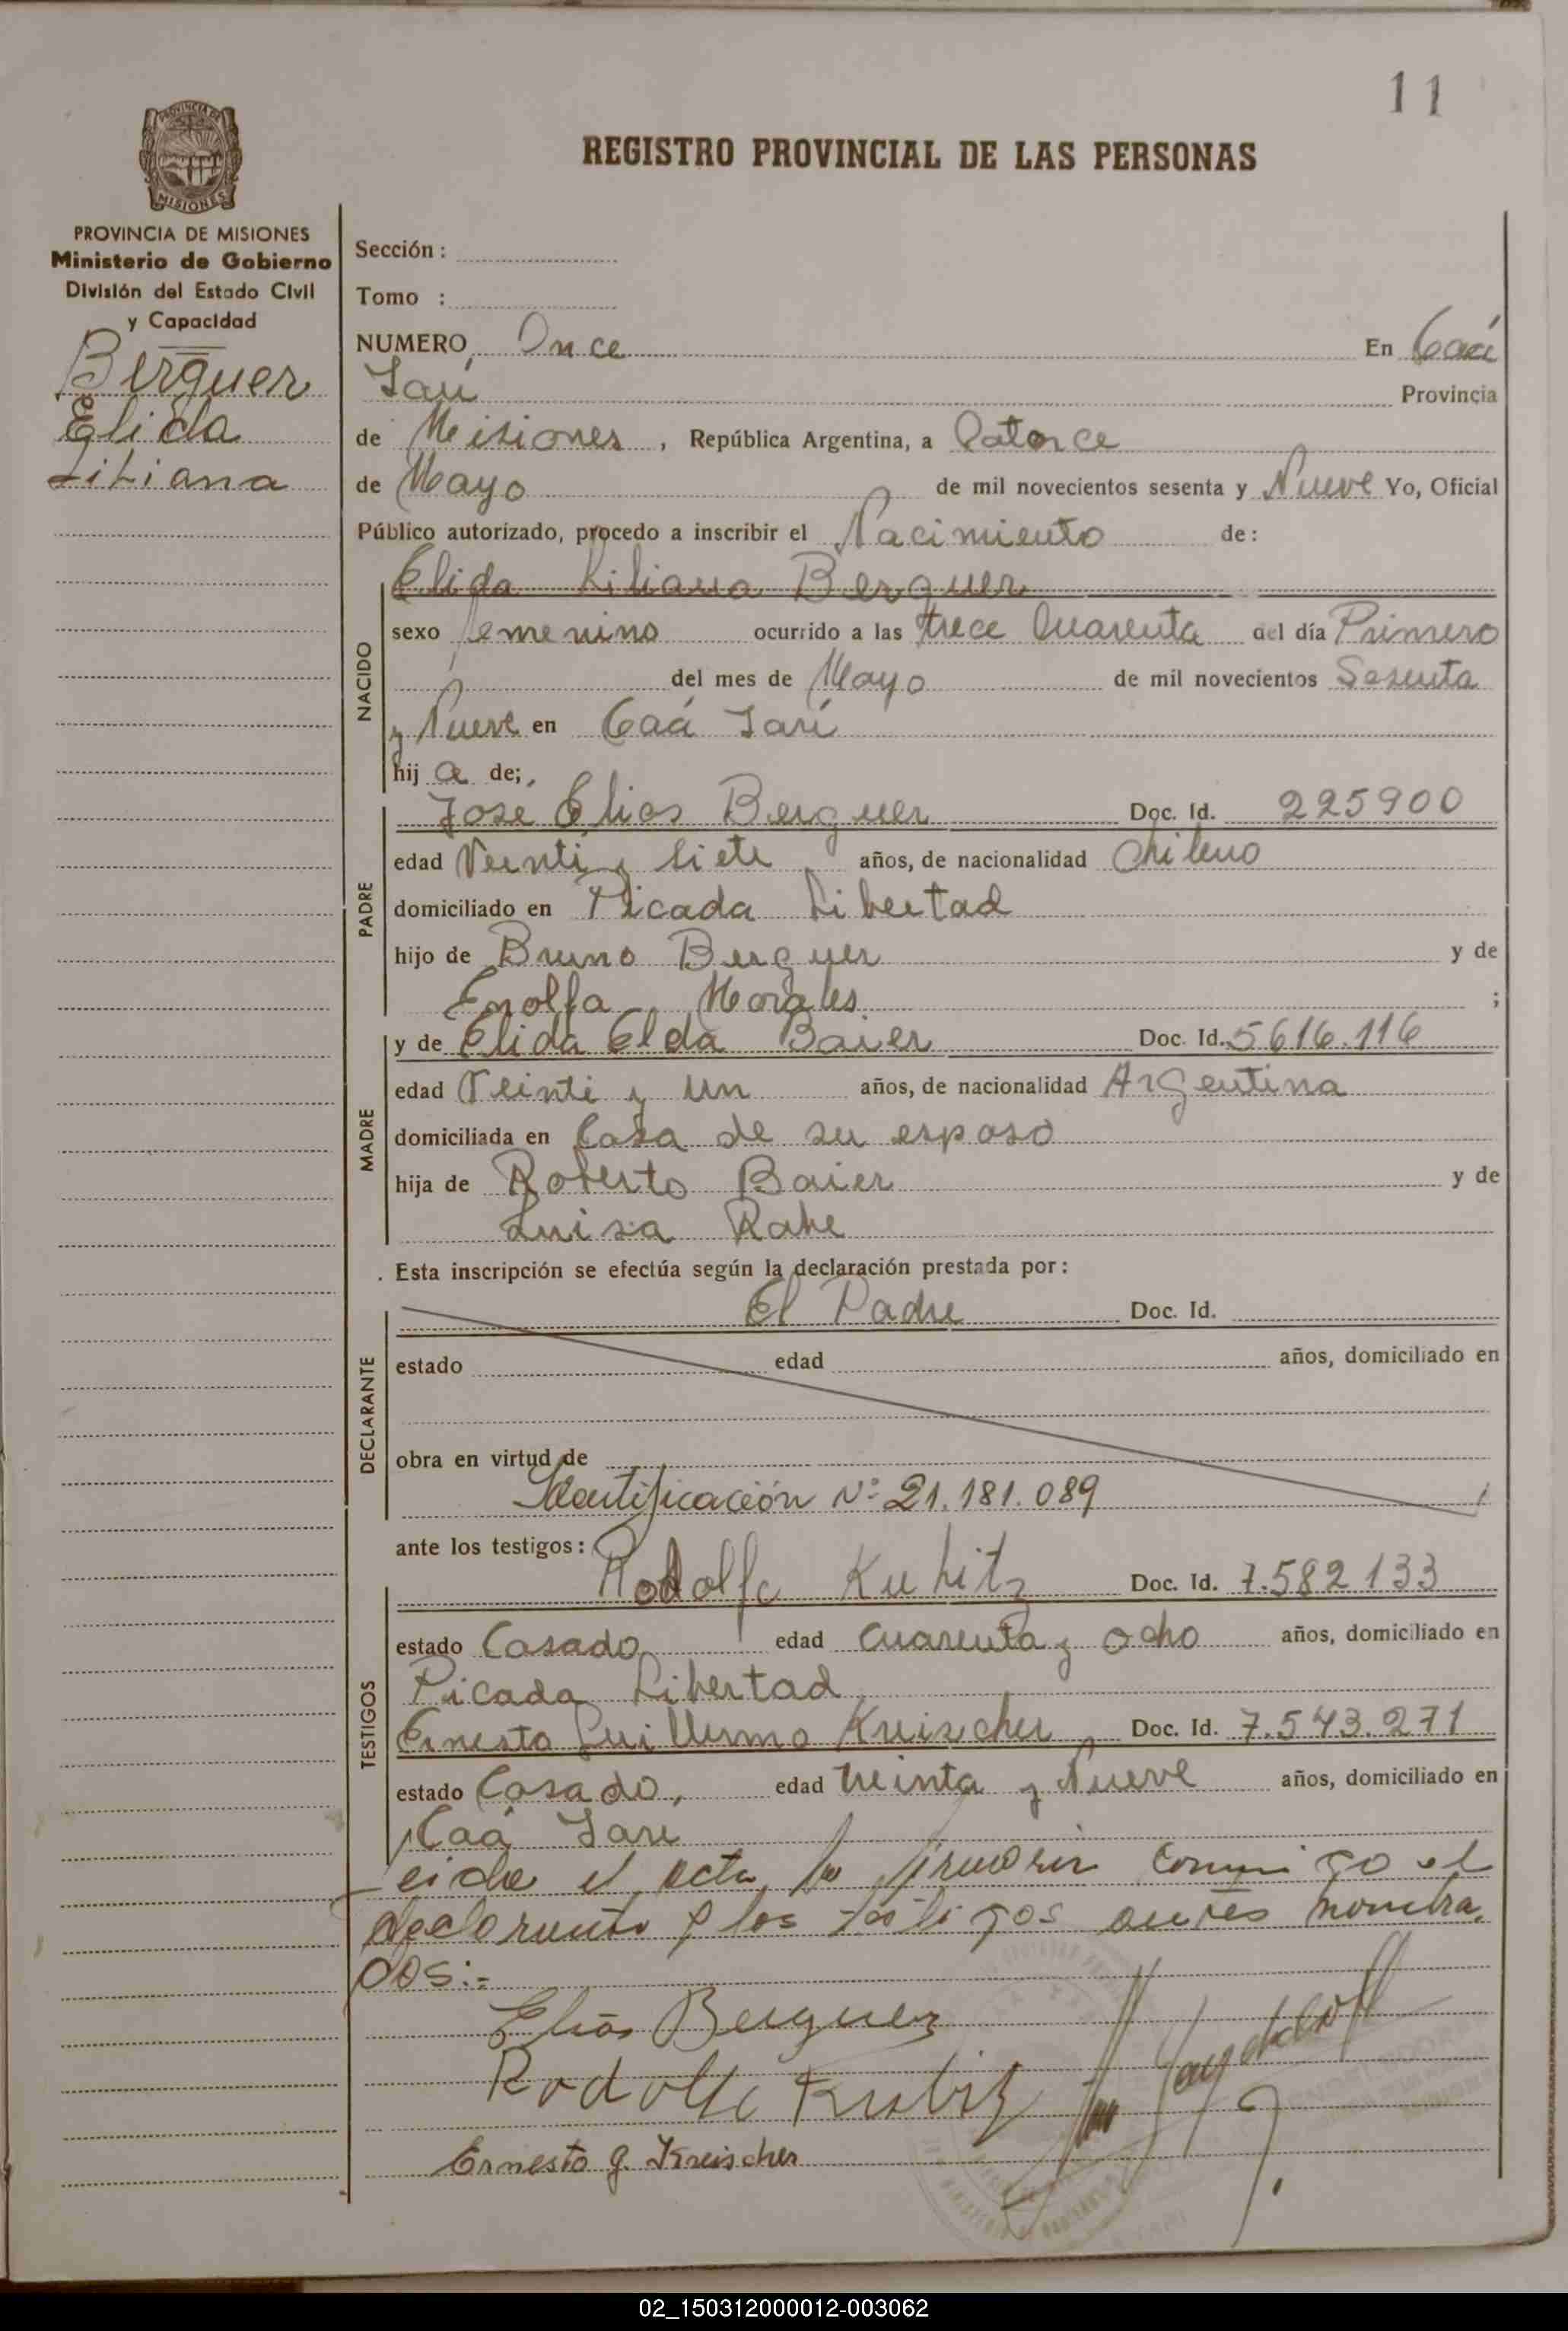 11
PROVINCIA DE
MISIONES
REGISTRO PROVINCIAL DE LAS PERSONAS
PROVINCIA DE MISIONES
Ministerio de Gobierno
División del Estado Civil
y Capacidad
Berguer
Elida
Liliana
Sección :
Tomo :
NUMERO Once En Caá
Yarí Provincia
de Misiones , República Argentina, a Catorce
de Mayo de mil novecientos sesenta y Nueve Yo, Oficial
Público autorizado, procedo a inscribir el Nacimiento de:
NACIDO
Elida Liliana Berguer
sexo femenino ocurrido a las trece Cuarenta del día Primero
del mes de Mayo de mil novecientos Sesenta
y Nueve en Caá Yarí
hij a de;
PADRE
José Elias Berguer Doc. Id. 225900
edad Veinti y siete años, de nacionalidad Chileno
domiciliado en Picada Libertad
hijo de Bruno Berguer y de
Enolfa Morales ;
MADRE
y de Elida Elda Baier Doc. Id. 5616.116
edad Veinti y un años, de nacionalidad Argentina
domiciliada en Casa de su esposo
hija de Roberto Baier y de
Luisa Rahe
Esta inscripción se efectúa según la declaración prestada por:
DECLARANTE
El Padre Doc. Id.
estado edad años, domiciliado en
obra en virtud de
Identificación Nº 21.181.089
ante los testigos:
TESTIGOS
Rodolfo Kubitz Doc. Id. 7.582133
estado Casado edad cuarenta y ocho años, domiciliado en
Picada Libertad
Ernesto Guillermo Kreischer Doc. Id. 7.543.271
estado Casado, edad treinta y Nueve años, domiciliado en
Caá Yarí
Leida el acta, la firman conmigo el
declarante y los testigos antes nombra
dos:-
Elias Berguer
Rodolfo Kubitz
Ernesto G. Kreischer
02_150312000012-003062